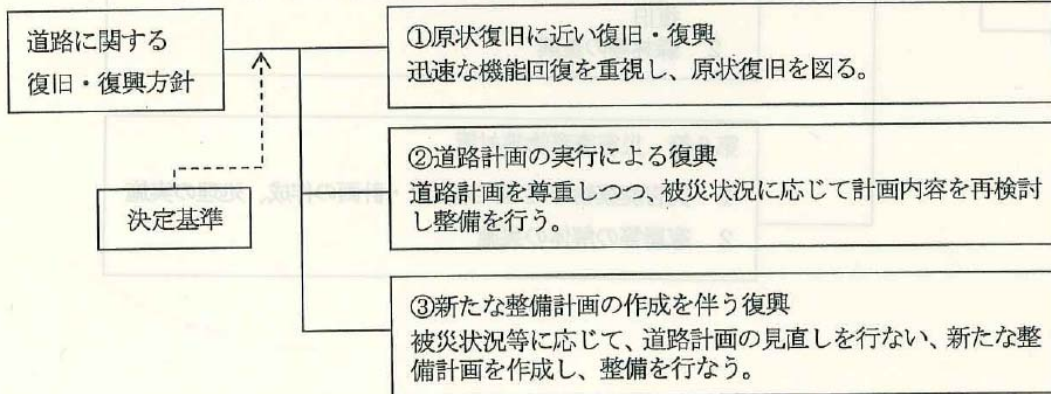 道路に関する
復旧・復興方針
決定基準
①原状復旧に近い復旧・復興
迅速な機能回復を重視し、原状復旧を図る。
②道路計画の実行による復興
道路計画を尊重しつつ、被災状況に応じて計画内容を再検討
し整備を行う。
③新たな整備計画の作成を伴う復興
被災状況等に応じて、道路計画の見直しを行ない、新たな整
備計画を作成し、整備を行なう。